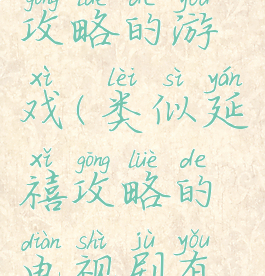 gōng lüè de yóu
攻略的游
xì lèi sì yán
戏(类似延
xǐ gōng lüè de
禧攻略的
diàn shì jù yǒu
电视剧有